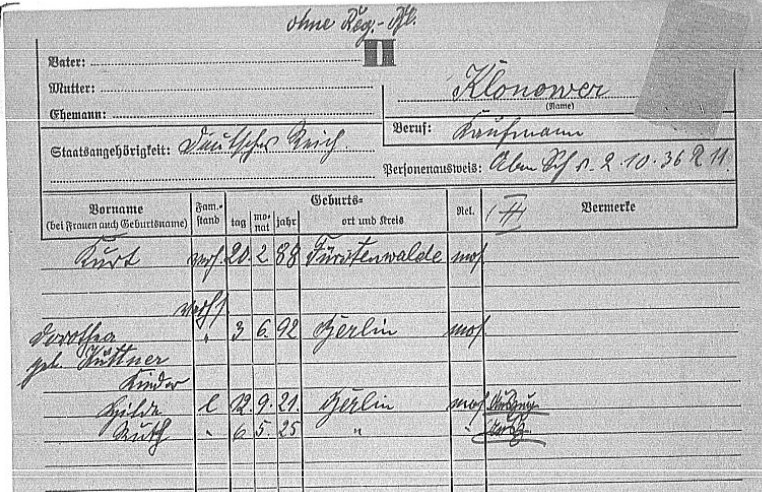 ohne Reg.-Bl.
II
Vater:
Mutter:
Klonower
(Name)
Ehemann:
Beruf: Kaufmann
Staatsangehörigkeit: Deutsches Reich.
Personenausweis: Abm Sch v. 2.10.36 R 11.
Vorname
(bei Frauen auch Geburtsname)
Fam.-
stand
Geburts-
tag
mo-
nat
jahr
ort und Kreis
Rel.
Vermerke
Kurt verh. 20. 2. 88 Fürstenwalde mos
verh
Dorothea " 3 6. 92 Berlin mos
geb. Küttner
Kinder
Hilde l 12. 9. 21. Berlin mos
Ruth " 6 5. 25 " "